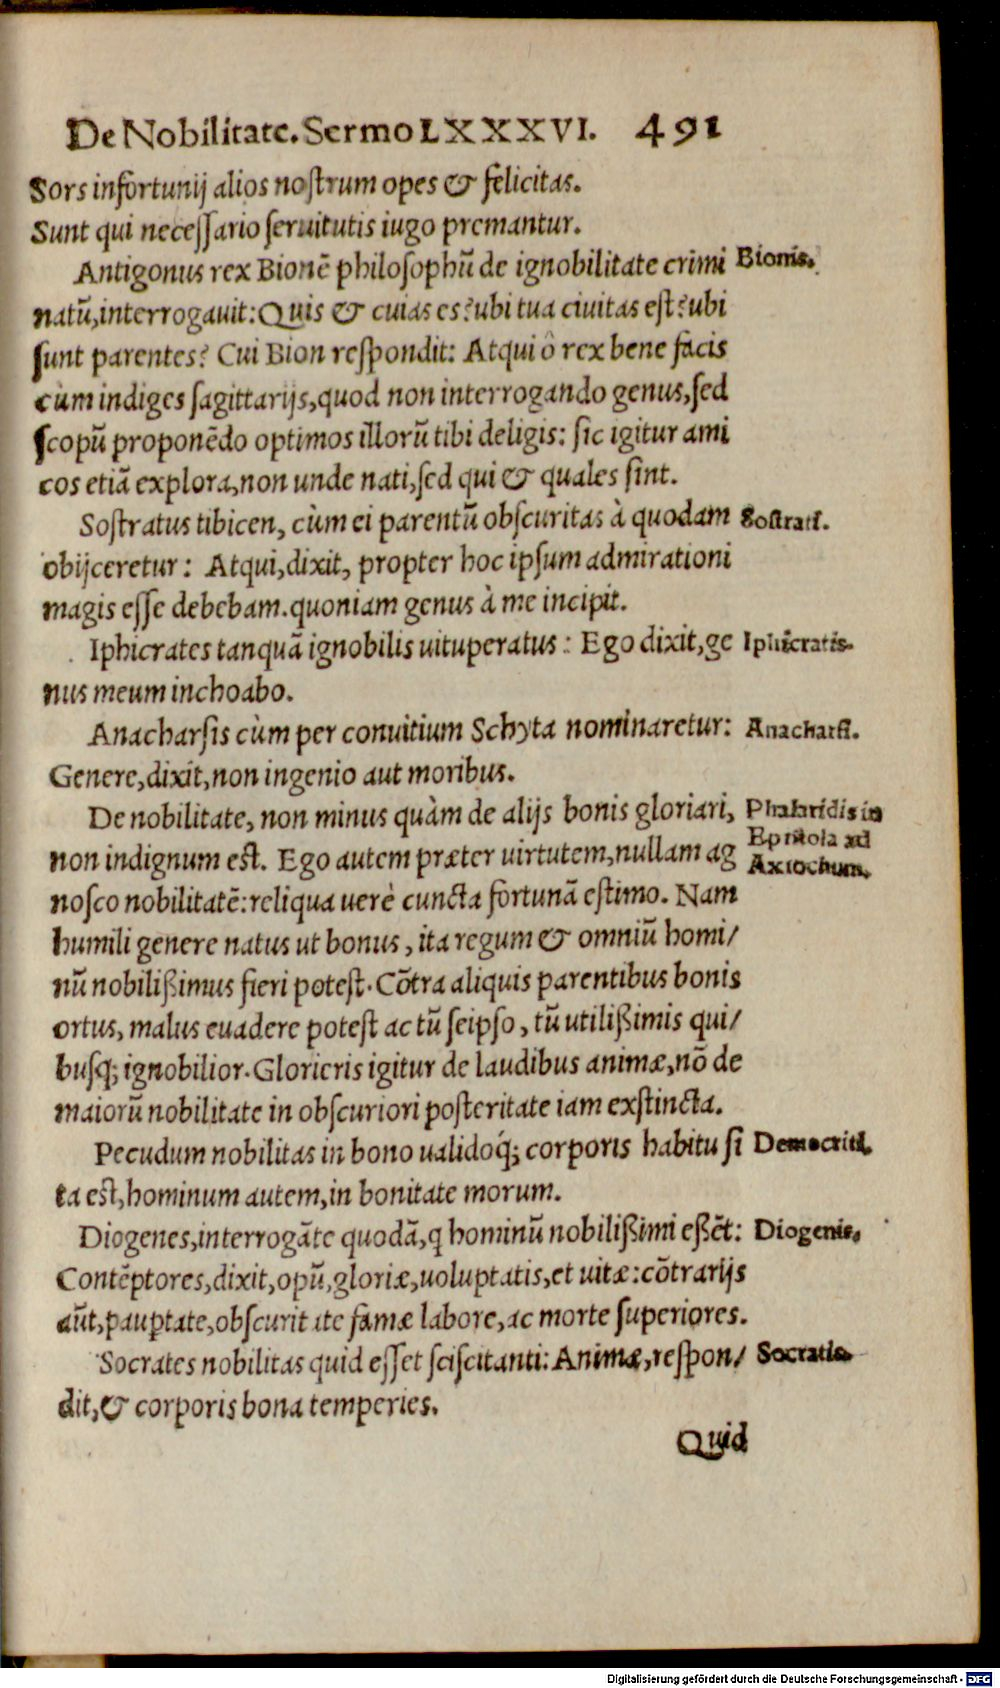 De Nobilitate. Sermo LXXXVI. 491
Sors infortunij alios nostrum opes & felicitas.
Sunt qui necessario seruitutis iugo premantur.
Antigonus rex Bionē philosophū de ignobilitate crimi Bionis.
natū, interrogavit: Quis & cuias es? ubi tua civitas est? ubi
sunt parentes? Cui Bion respondit: Atqui ô rex bene facis
cùm indiges sagittarijs, quod non interrogando genus, sed
scopū proponēdo optimos illorū tibi deligis: sic igitur ami
cos etiā explora, non unde nati, sed qui & quales sint.
Sostratus tibicen, cùm ei parentū obscuritas à quodam Sostrati.
obijceretur: Atqui, dixit, propter hoc ipsum admirationi
magis esse debebam. quoniam genus à me incipit.
Iphicrates tanquā ignobilis uituperatus: Ego dixit, ge Iphicratis.
nus meum inchoabo.
Anacharsis cùm per conuitium Schyta nominaretur: Anacharsi.
Genere, dixit, non ingenio aut moribus.
De nobilitate, non minus quàm de alijs bonis gloriari, Phalaridis in
Epistola ad
non indignum est. Ego autem præter uirtutem, nullam ag Axiochum.
nosco nobilitatē: reliqua uerè cuncta fortunā estimo. Nam
humili genere natus ut bonus, ita regum & omniū homi/
nū nobilißimus fieri potest. Cōtra aliquis parentibus bonis
ortus, malus euadere potest ac tū seipso, tū utilißimis qui/
busq; ignobilior. Glorieris igitur de laudibus animæ, nō de
maiorū nobilitate in obscuriori posteritate iam exstincta.
Pecudum nobilitas in bono ualidoq́; corporis habitu si Democriti.
ta est, hominum autem, in bonitate morum.
Diogenes, interrogāte quodā, q hominū nobilißimi eßēt: Diogenis.
Contēptores, dixit, opū, gloriæ, uoluptatis, et uitæ: cōtrarijs
aūt, paup̱tate, obscuritate famæ labore, ac morte superiores.
Socrates nobilitas quid esset sciscitanti: Animæ, respon/ Socratis.
dit, & corporis bona temperies.
Quid
Digitalisierung gefördert durch die Deutsche Forschungsgemeinschaft - DFG